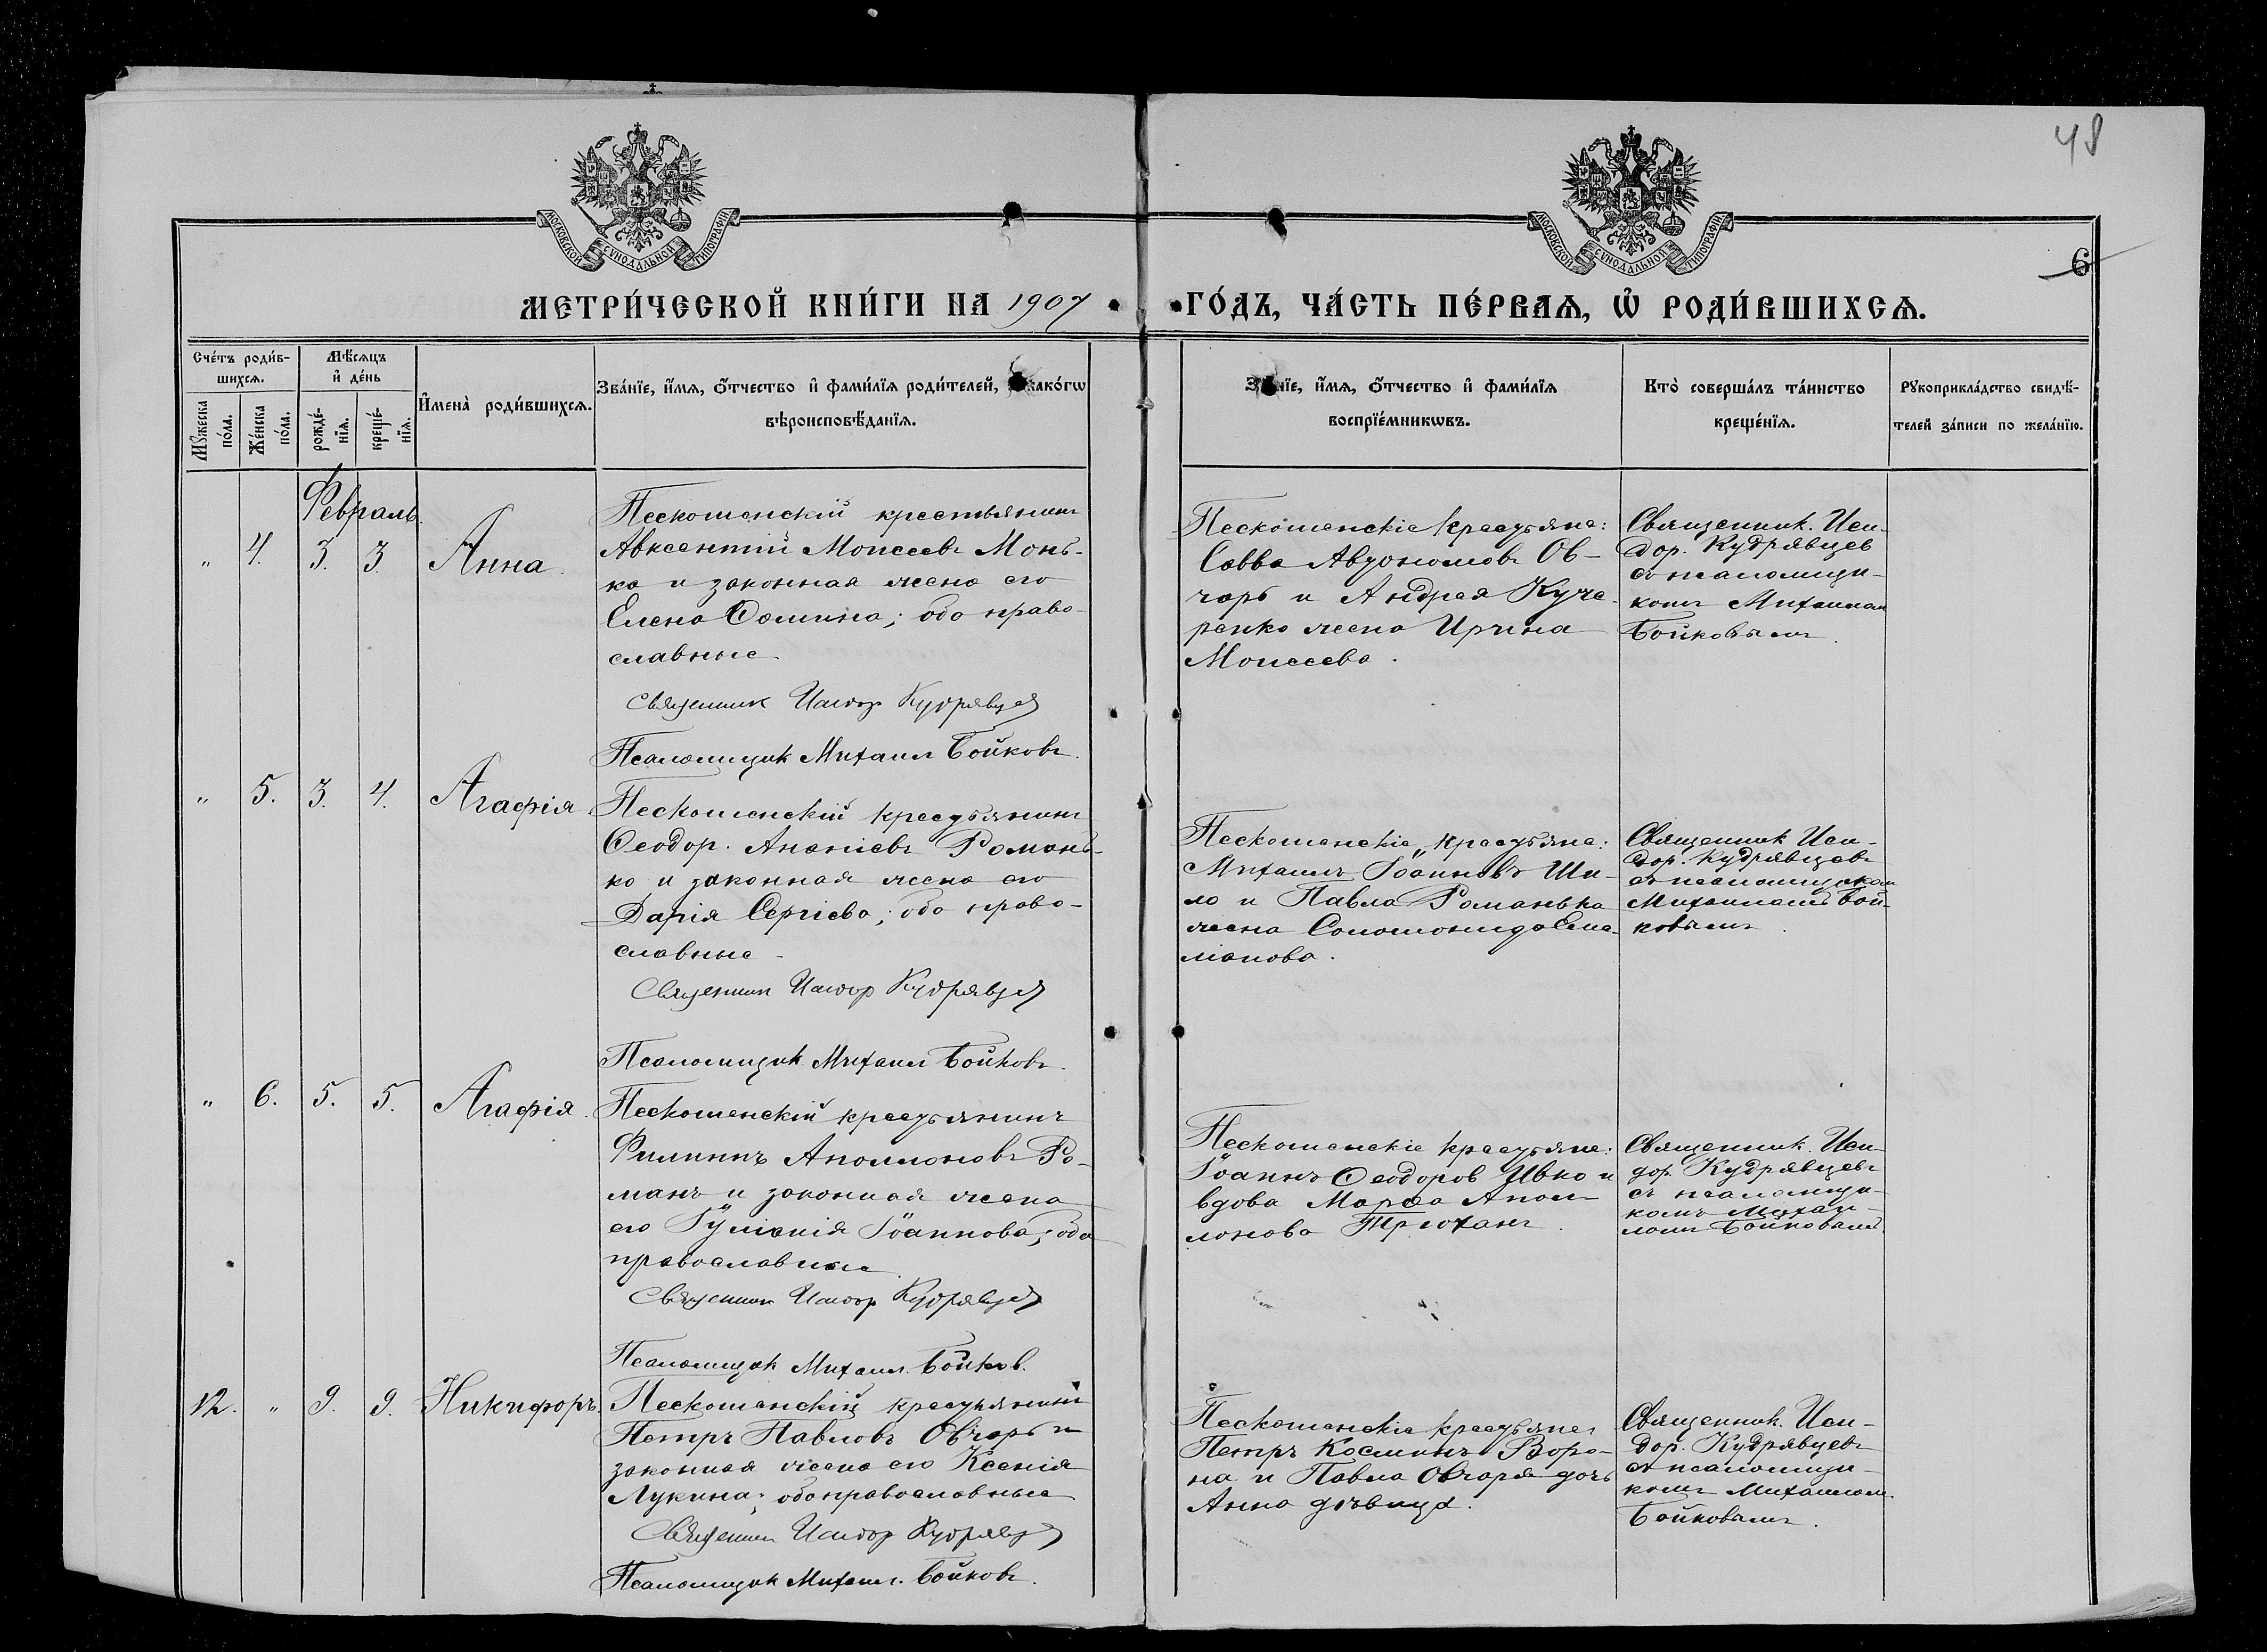 48
МОСКОВСКОЙ СУНОДАЛЬНОЙ ТИПОГРАФІИ
МОСКОВСКОЙ СУНОДАЛЬНОЙ ТИПОГРАФІИ
6
МЕТРИ́ЧЕСКОЙ КНИ́ГИ НА 1907
ГО́ДЪ, ЧА́СТЬ ПЕ́РВАѦ, Ѿ РОДИ́ВШИХСѦ.
Сче́тъ роди́в-
шихсѧ.
Мѣ́сѧцъ
и҆ де́нь
Мꙋ́жеска
по́ла.
Же́нска
по́ла.
рожде́-
нїѧ.
креще́-
нїѧ.
И҆мена̀ роди́вшихсѧ.
Зва́нїе, и҆́мѧ, ѻ҆́тчество и҆ фами́лїѧ роди́телей, како́гѡ
вѣроисповѣ́данїѧ.
Зва́нїе, и҆́мѧ, ѻ҆́тчество и҆ фами́лїѧ
воспрїе́мникѡвъ.
Кто̀ соверша́лъ та́инство
креще́нїѧ.
Рꙋкоприкла́дство свидѣ́-
телей за́писи по жела́нїю.
Февраль.
" 4. 3. 3. Анна.
Пескошенскій крестьянинъ
Авксентій Моисеевъ Монь-
ко и законная жена его
Елена Ѳомина; оба право-
славные
Священник Исидор Кудрявцев
Псаломщик Михаил Бойковъ.
Пескошенскіе крестьяне:
Савва Автономовъ Ов-
чарь и Андрея Куча-
ренко жена Ирина
Моисеева.
Священник. Иси-
дор. Кудрявцев
съ псаломщи-
комъ Михаилом
Бойковымъ.
" 5. 3. 4. Агафія
Пескошенскій крестьянинъ
Ѳеодор. Ананіевъ Романь-
ко и законная жена его
Дарія Сергіева; оба право-
славные
Священник Исидор Кудрявцев
Псаломщик Михаил Бойковъ.
Пескошенскіе крестьяне:
Михаилъ Іоанновъ Ши-
ло и Павла Романька
жена Соломонида
Священник Иси-
дор. Кудрявцевъ
съ псаломщиком
Михаиломъ Бой-
ковымъ.
" 6. 5. 5. Агафія.
Пескошенскій крестьянинъ
Филиппъ Аполлоновъ Ро-
манъ и законная жена
его Іуліанія Іоаннова; оба
православные
Священник Исидор Кудрявцев
Псаломщик Михаил Бойковъ.
Пескошенскіе крестьяне:
Іоаннъ Ѳеодоров Ивко и
вдова Марѳа Апол-
лонова
Священник. Иси-
дор. Кудрявцевъ
съ псаломщи-
комъ Михаи-
ломъ Бойковымъ.
12. " 9. 9. Никифоръ.
Пескошенскій крестьянинъ
Петръ Павловъ Овчарь и
законная жена его Ксенія
Лукина; оба православные
Священник Исидор Кудрявцев
Псаломщик Михаил. Бойковъ.
Пескошенскіе крестьяне:
Петръ Косминъ Воро-
на и Павла Овчаря дочь
Анна дѣвица.
Священник. Иси-
дор. Кудрявцевъ
съ псаломщи-
комъ Михаилом.
Бойковымъ.